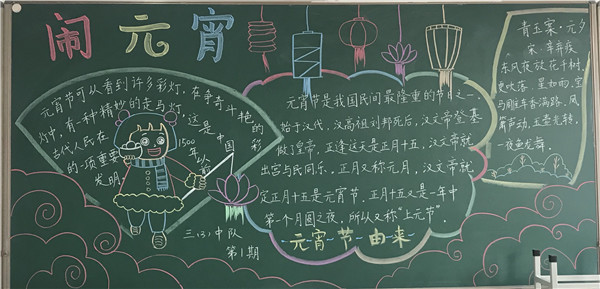 闹元宵
元宵节可以看到许多彩灯，在争奇斗艳的彩
灯中，有一种精妙的走马灯，这是中国
古代人民在1500年以前
的一项重要
发明。
三(3)中队
第1期
元宵节是我国民间最隆重的节日之一，
始于汉代，汉高祖刘邦死后，汉文帝登基
做了皇帝，正逢这天是正月十五，汉文帝就
出宫与民同乐。正月又称元月，汉文帝就
定正月十五是元宵节，正月十五又是一年中
第一个月圆之夜，所以又称“上元节”。
元宵节由来
青玉案·元夕
宋·辛弃疾
东风夜放花千树，
更吹落，星如雨，宝
马雕车香满路，凤
箫声动，玉壶光转，
一夜鱼龙舞。